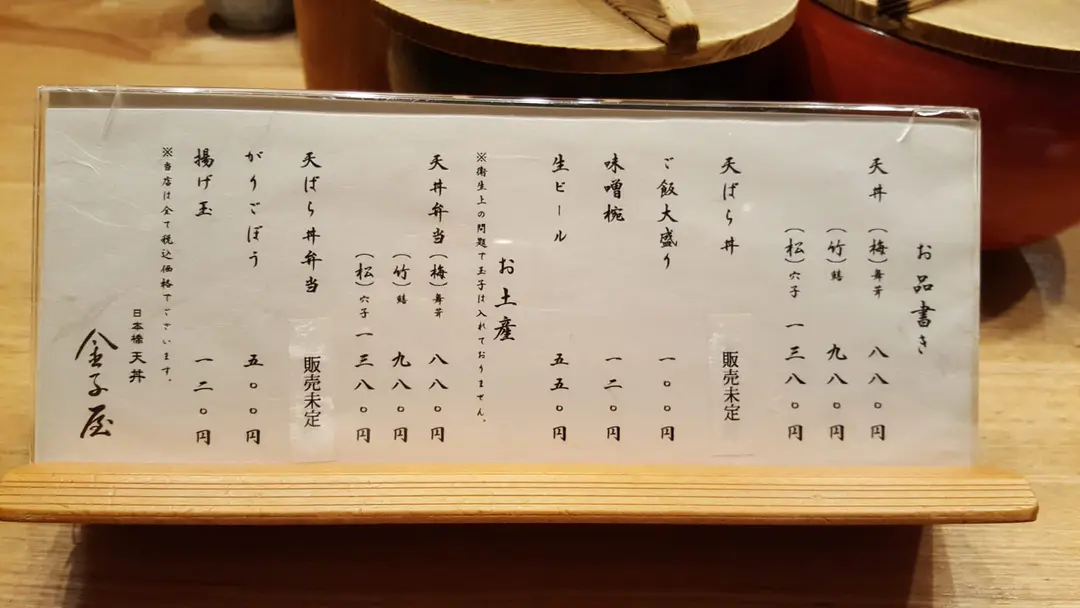 お品書き
天丼 (梅)舞茸 八八〇円
(竹)鱚 九八〇円
(松)穴子 一三八〇円
天ばら丼 販売未定
ご飯大盛り 一〇〇円
味噌椀 一二〇円
生ビール 五五〇円
お土産
※衛生上の問題で玉子は入れておりません。
天丼弁当 (梅)舞茸 八八〇円
(竹)鱚 九八〇円
(松)穴子 一三八〇円
天ばら丼弁当 販売未定
がりごぼう 五〇〇円
揚げ玉 一二〇円
※当店は全て税込価格でございます。
日本橋 天丼
金子屋